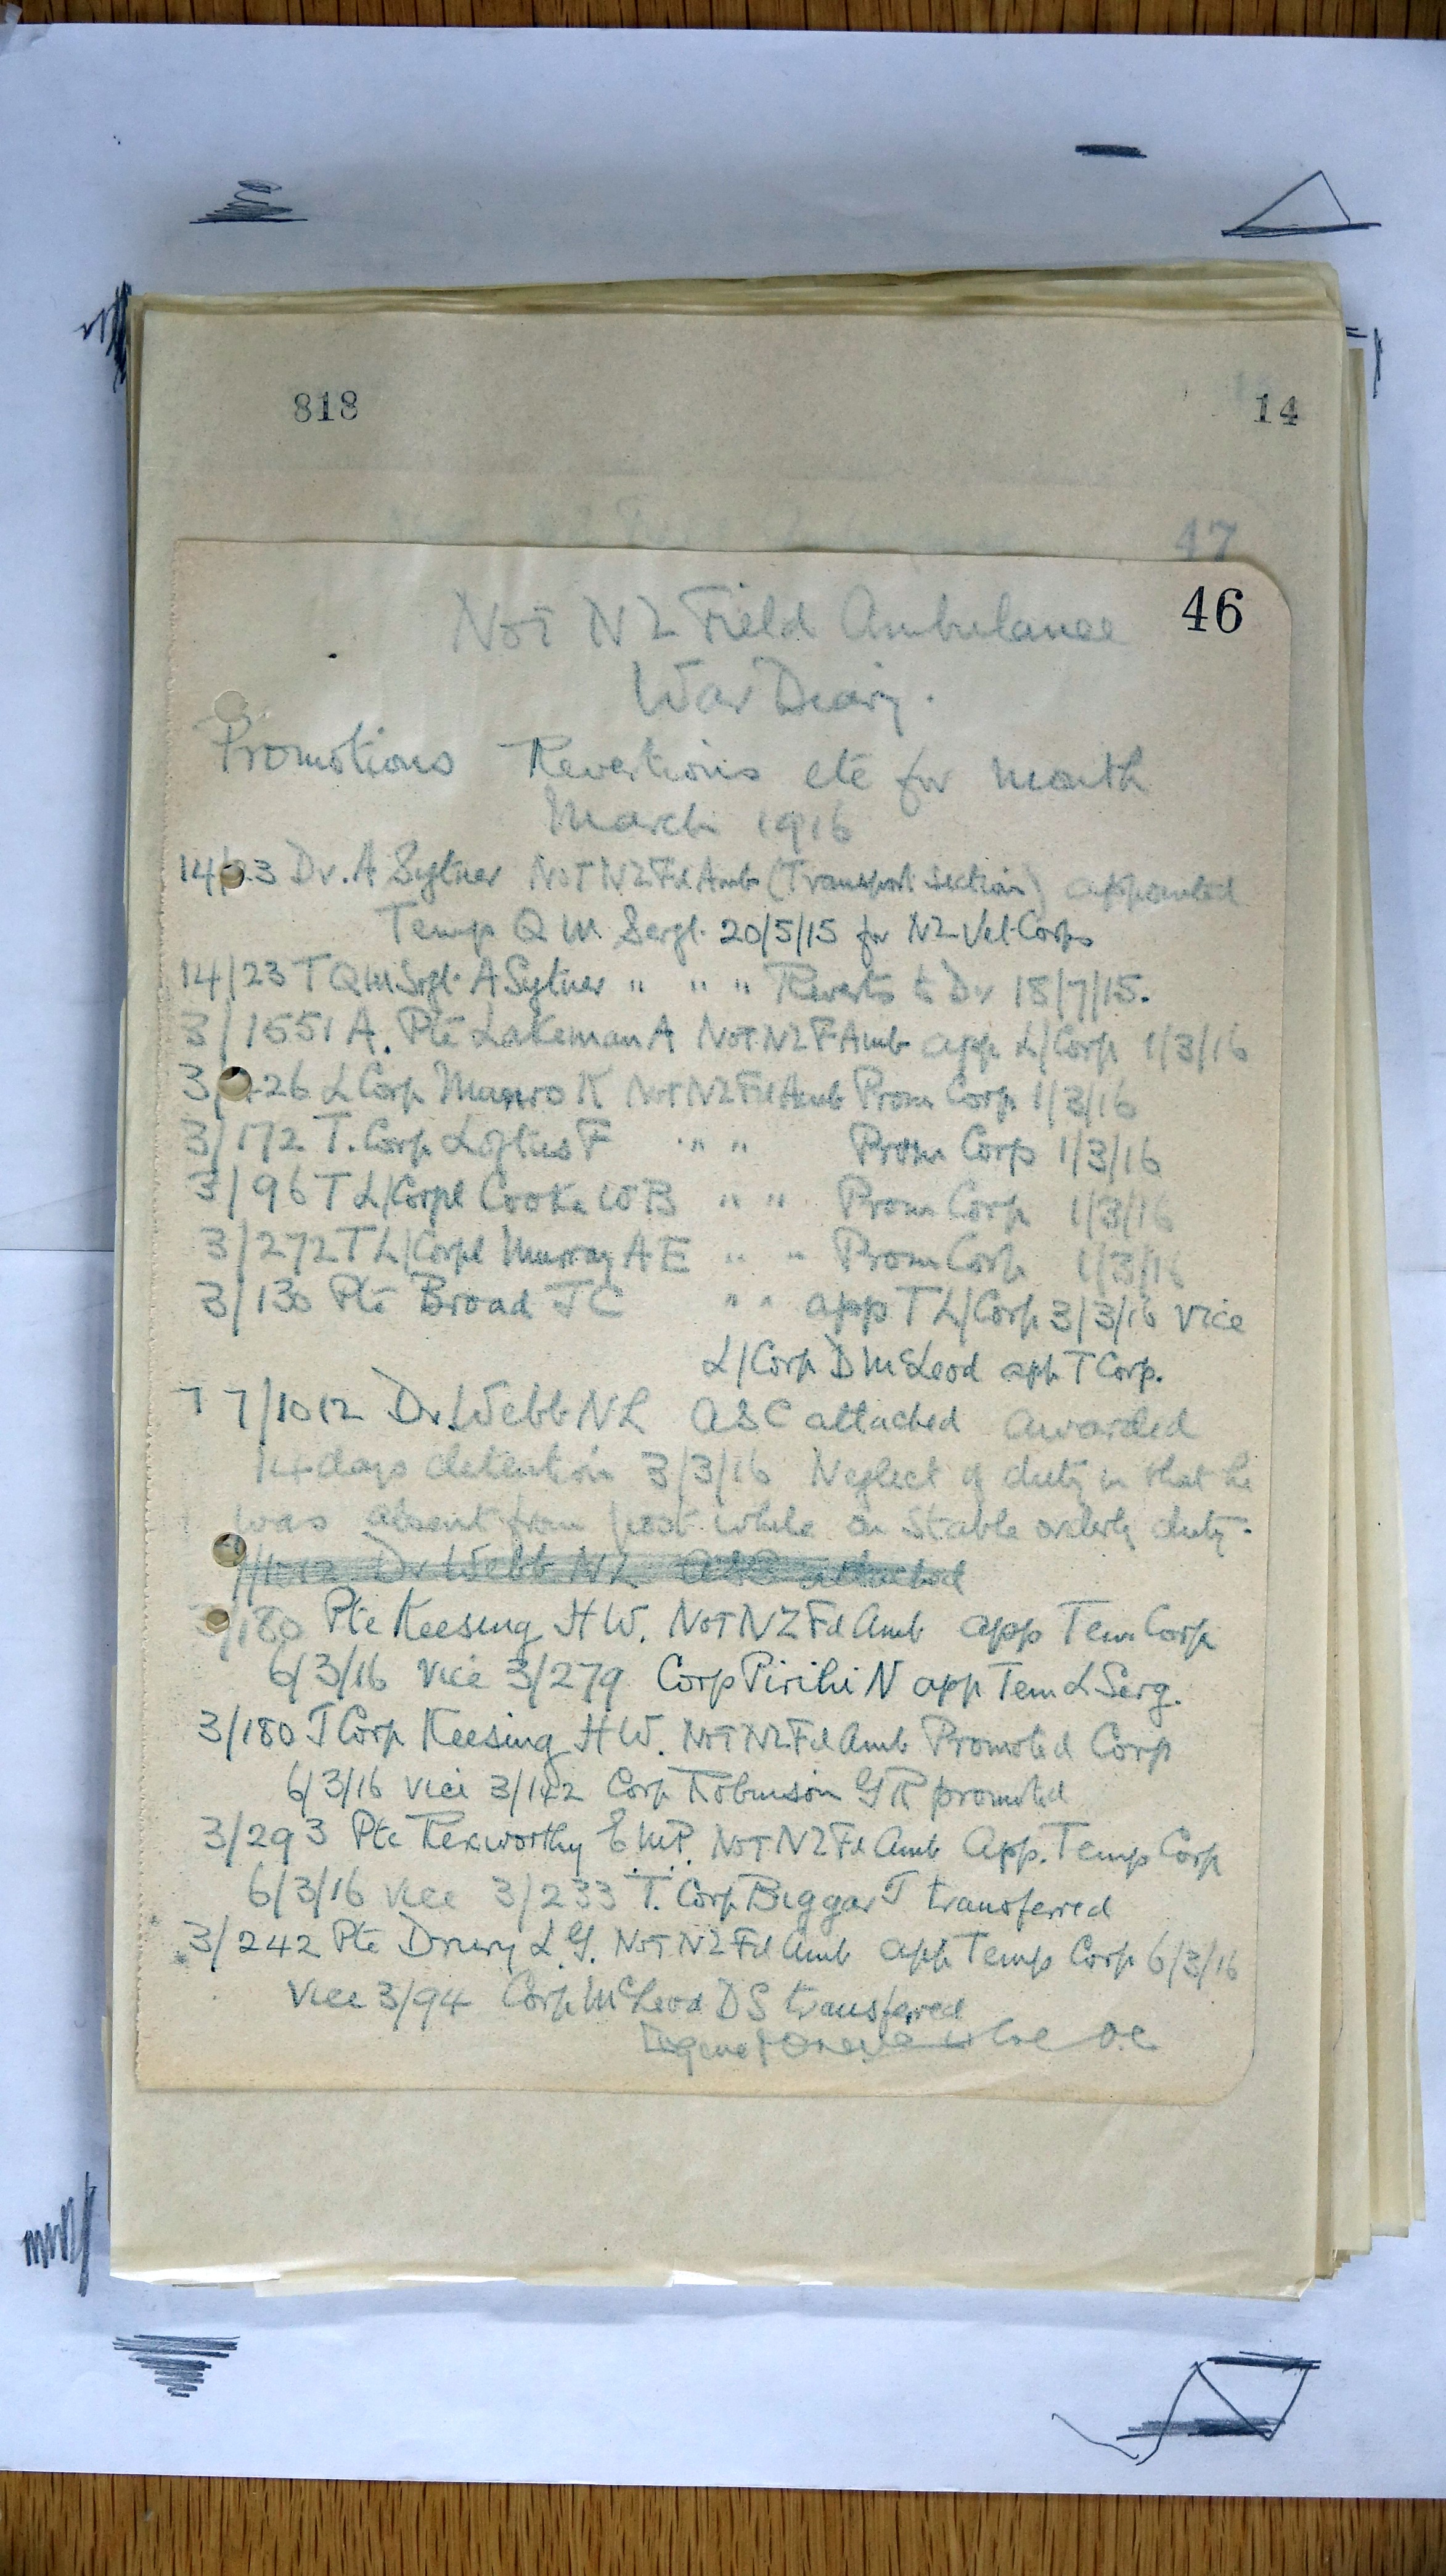 818
14
47
46
No 1 NZ Field Ambulance
War Diary.
Promotions Revertions etc for month
March 1916
14/23 Dr. A Sytner No 1 NZ Fd Amb (Transport Section) appointed
Temp Q M Sergt. 20/5/15 for NZ Vet Corps
14/23 T QM Sergt. A Sytner " " " Reverts to Dr 18/7/15.
3/1551 A. Pte Lakeman A No 1 NZ F Amb app L/Corp 1/3/16
26 L Corp Munro K No 1 NZ Fd Amb Prom Corp 1/3/16
3/172 T. Corp Loftus F " " Prom Corp 1/3/16
3/96 T L/Corpl Cooke W B " " Prom Corp 1/3/16
3/272 T L/Corpl Murray A E " " Prom Corp 1/3/16
3/130 Pte Broad J C " " app T L/Corp 3/3/16 vice
L/Corp D McLeod app T Corp.
7/1012 Dr. Webb N L ASC attached awarded
14 days detention 3/3/16 Neglect of duty in that he
was absent from post while on stable orderly duty.
7/1012 Dr Webb N L ASC attached
3/180 Pte Keesing H W. No 1 NZ Fd Amb app Tem Corp
6/3/16 vice 3/279 Corp Pirihi N app Tem L Serg.
3/180 T Corp Keesing H W. No 1 NZ Fd Amb Promoted Corp
6/3/16 vice 3/142 Corp Robinson G R promoted
3/293 Pte Rexworthy E M P. No 1 NZ Fd Amb App. Temp Corp
6/3/16 vice 3/233 T. Corp Biggar J transferred
3/242 Pte Drury L. G. No 1 NZ Fd Amb app Temp Corp 6/3/16
Vice 3/94 Corp McLeod D S transferred
Col O.C.